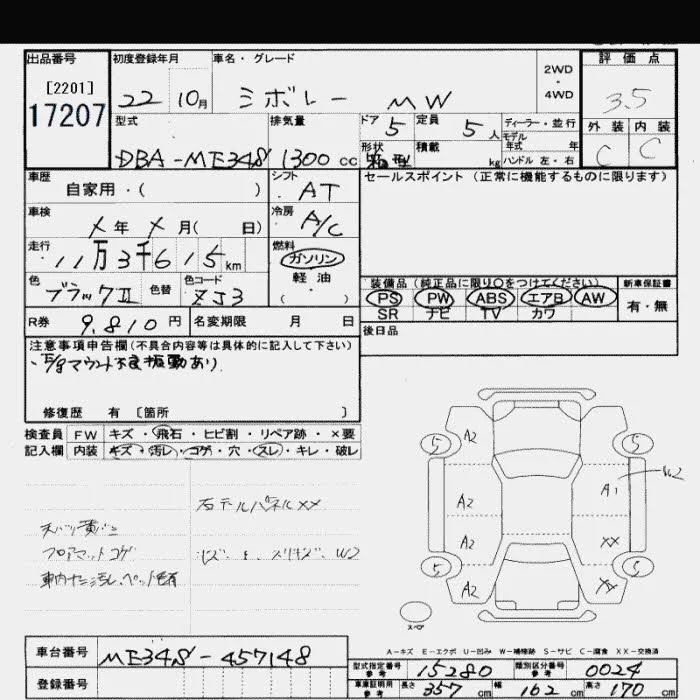 出品番号 初度登録年月 車名・グレード 評価点
[2201]
17207
22 10月 シボレー MW
2WD
・
4WD
3.5
型式 排気量 ドア 5 定員 5人 ディーラー・並行
モデル
年式 年
外装 内装
DBA-ME34S 1300cc 形状 箱型 積載 kg ハンドル 左・右
C C
車歴 シフト セールスポイント (正常に機能するものに限ります)
自家用・( ) AT
車検 冷房
メ年 メ月( 日) A/C
走行 燃料
11万3千615km ガソリン
軽油
・
( )
色 色替 色コード 装備品 (純正品に限り○をつけてください) 新車保証書
ブラックII ZJ3 PS PW ABS エアB AW 有・無
SR ナビ TV カワ
R券 9,810円 名変期限 月 日 後日品
注意事項申告欄(不具合内容等は具体的に記入して下さい)
・E/gマウント不良振動あり
修復歴 有 〔箇所 〕
検査員 FW キズ・飛石・ヒビ割・リペア跡・×要
記入欄 内装 キズ・汚レ・コゲ・穴・スレ・キレ・破レ
5 A2 5
A2 A1 W2
A2 XX
5 A2 5
右テールパネルXX
フロアマットコゲ
スペア
A-キズ E-エクボ U-凹み W-補修跡 S-サビ C-腐食 XX-交換済
車台番号 ME34S-457148
登録番号
型式指定番号 参考 15280 類別区分番号 参考 0024
車庫証明用 参考 長さ 357cm 幅 162cm 高さ 170cm